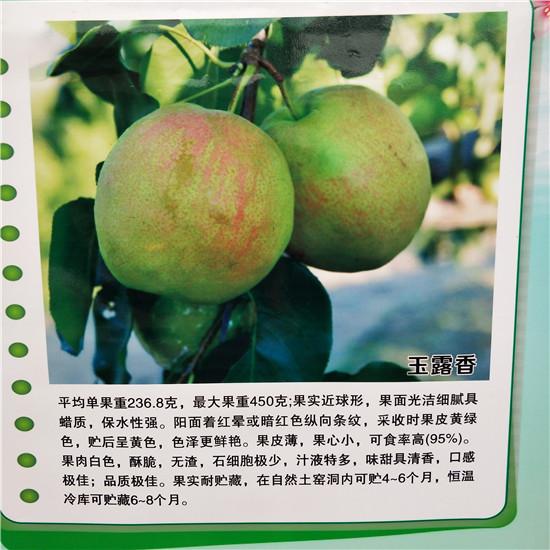 玉露香
平均单果重236.8克，最大果重450克;果实近球形，果面光洁细腻具
蜡质，保水性强。阳面着红晕或暗红色纵向条纹，采收时果皮黄绿
色，贮后呈黄色，色泽更鲜艳。果皮薄，果心小，可食率高(95%)。
果肉白色，酥脆，无渣，石细胞极少，汁液特多，味甜具清香，口感
极佳；品质极佳。果实耐贮藏，在自然土窑洞内可贮4~6个月，恒温
冷库可贮藏6~8个月。